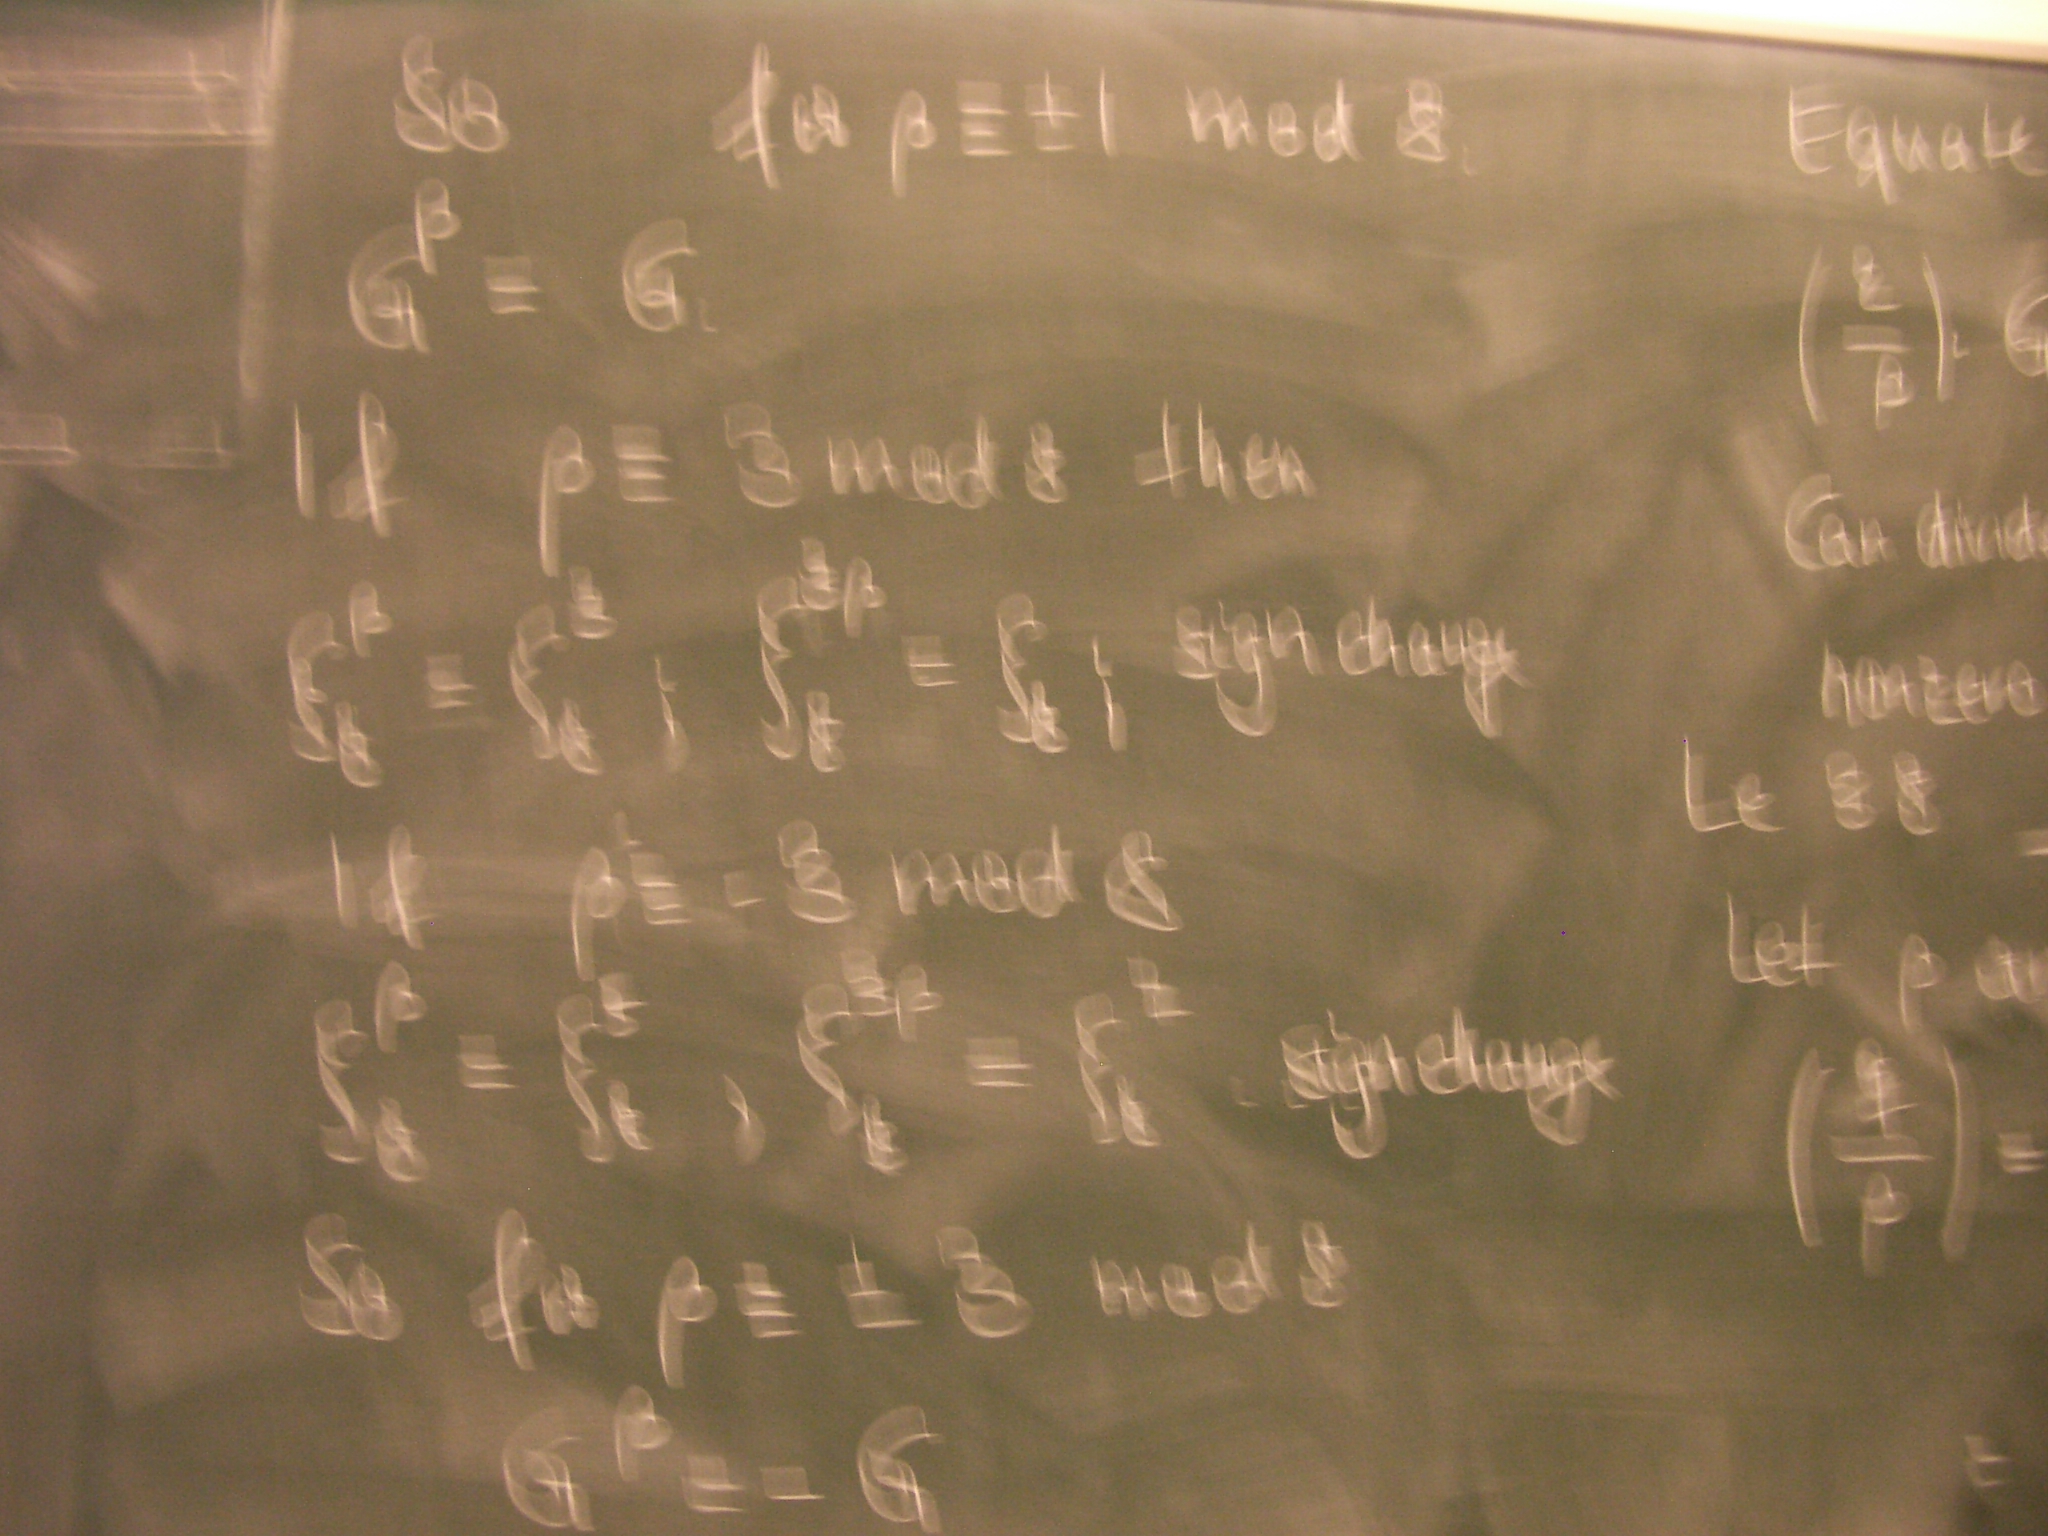 So for p ≡ ±1 mod 8.
G^p = G.
If p ≡ 3 mod 8 then
ζ_8^p = ζ_8^3, ζ_8^{3p} = ζ_8, sign change
If p ≡ -3 mod 8
sign change
So for p ≡ ± 3 mod 8
G^p = - G
Equate
(2/p). G
Can divide
nonzero
Le 88
Let p
(q/p) =
=